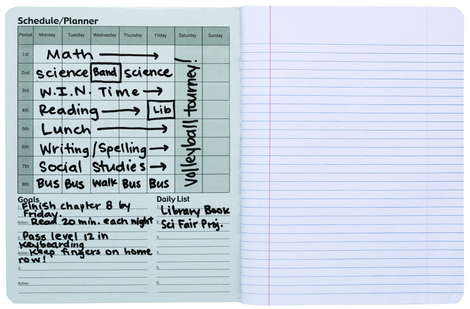 Schedule/Planner
Period Monday Tuesday Wednesday Thursday Friday Saturday Sunday
1st Math
2nd science Band science
3rd W.I.N. Time
4th Reading Lib
5th Lunch
6th Writing/Spelling
7th Social Studies
8th Bus Bus Walk Bus Bus
Volleyball tourney!
Goals
Finish chapter 8 by
Friday.
Read 20 min. each night
Pass level 12 in
Keyboarding
Keep fingers on home
row!
Daily List
Library Book
Sci Fair Proj.